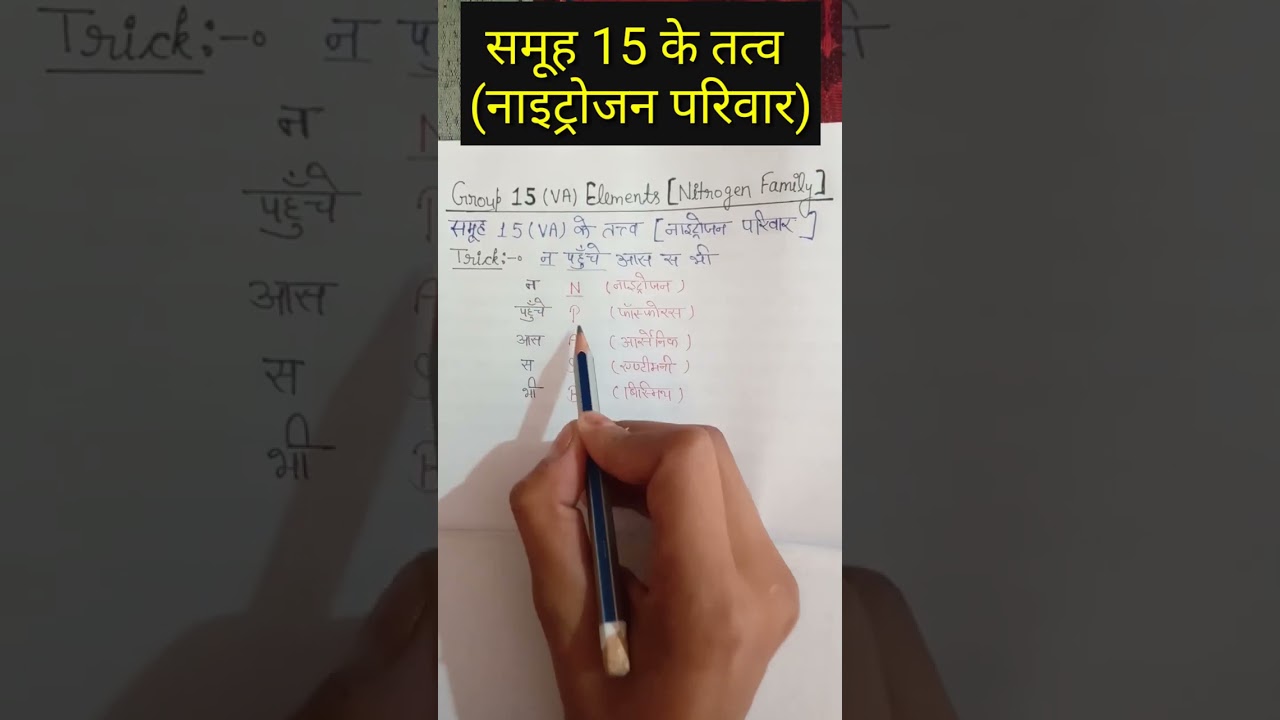 समूह 15 के तत्व
(नाइट्रोजन परिवार)
Group 15 (VA) Elements [Nitrogen Family]
समूह 15 (VA) के तत्त्व [नाइट्रोजन परिवार]
Trick:-० न पहुँचे आस स भी
न N (नाइट्रोजन)
पहुँचे P (फॉस्फोरस)
आस (आर्सेनिक)
स (एण्टीमनी)
भी B (बिस्मिथ)